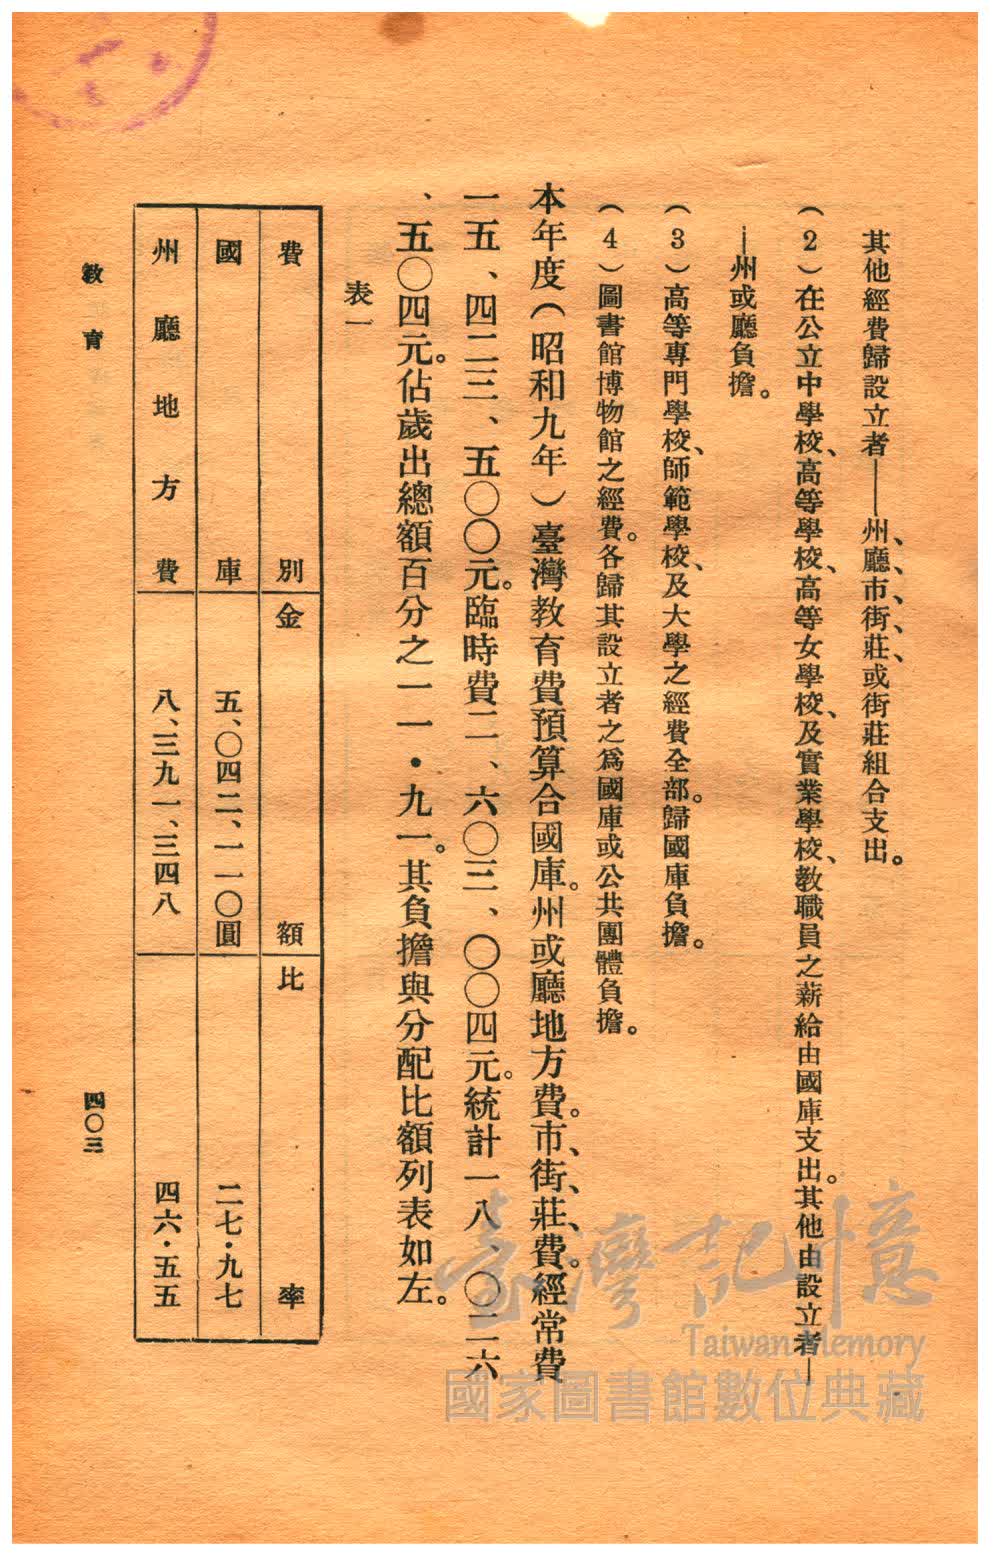 其他經費歸設立者——州、廳、市、街、莊、或街莊組合支出。
（2）在公立中學校、高等學校、高等女學校、及實業學校、教職員之薪給由國庫支出。其他由設立者—
—州或廳負擔。
（3）高等專門學校、師範學校、及大學之經費全部歸國庫負擔。
（4）圖書館博物館之經費。各歸其設立者之爲國庫或公共團體負擔。
本年度（昭和九年）臺灣教育費預算合國庫。州或廳地方費。市、街、莊、費。經常費
一五、四二三、五〇〇元。臨時費二、六〇三、〇〇四元。統計一八、〇二六
、五〇四元。佔歲出總額百分之一一・九一。其負擔與分配比額列表如左。
表一
費別 金額 比率
國庫 五、〇四二、一一〇圓 二七・九七
州廳地方費 八、三九一、三四八 四六・五五
教育
四〇三
臺灣記憶
Taiwan Memory
國家圖書館數位典藏